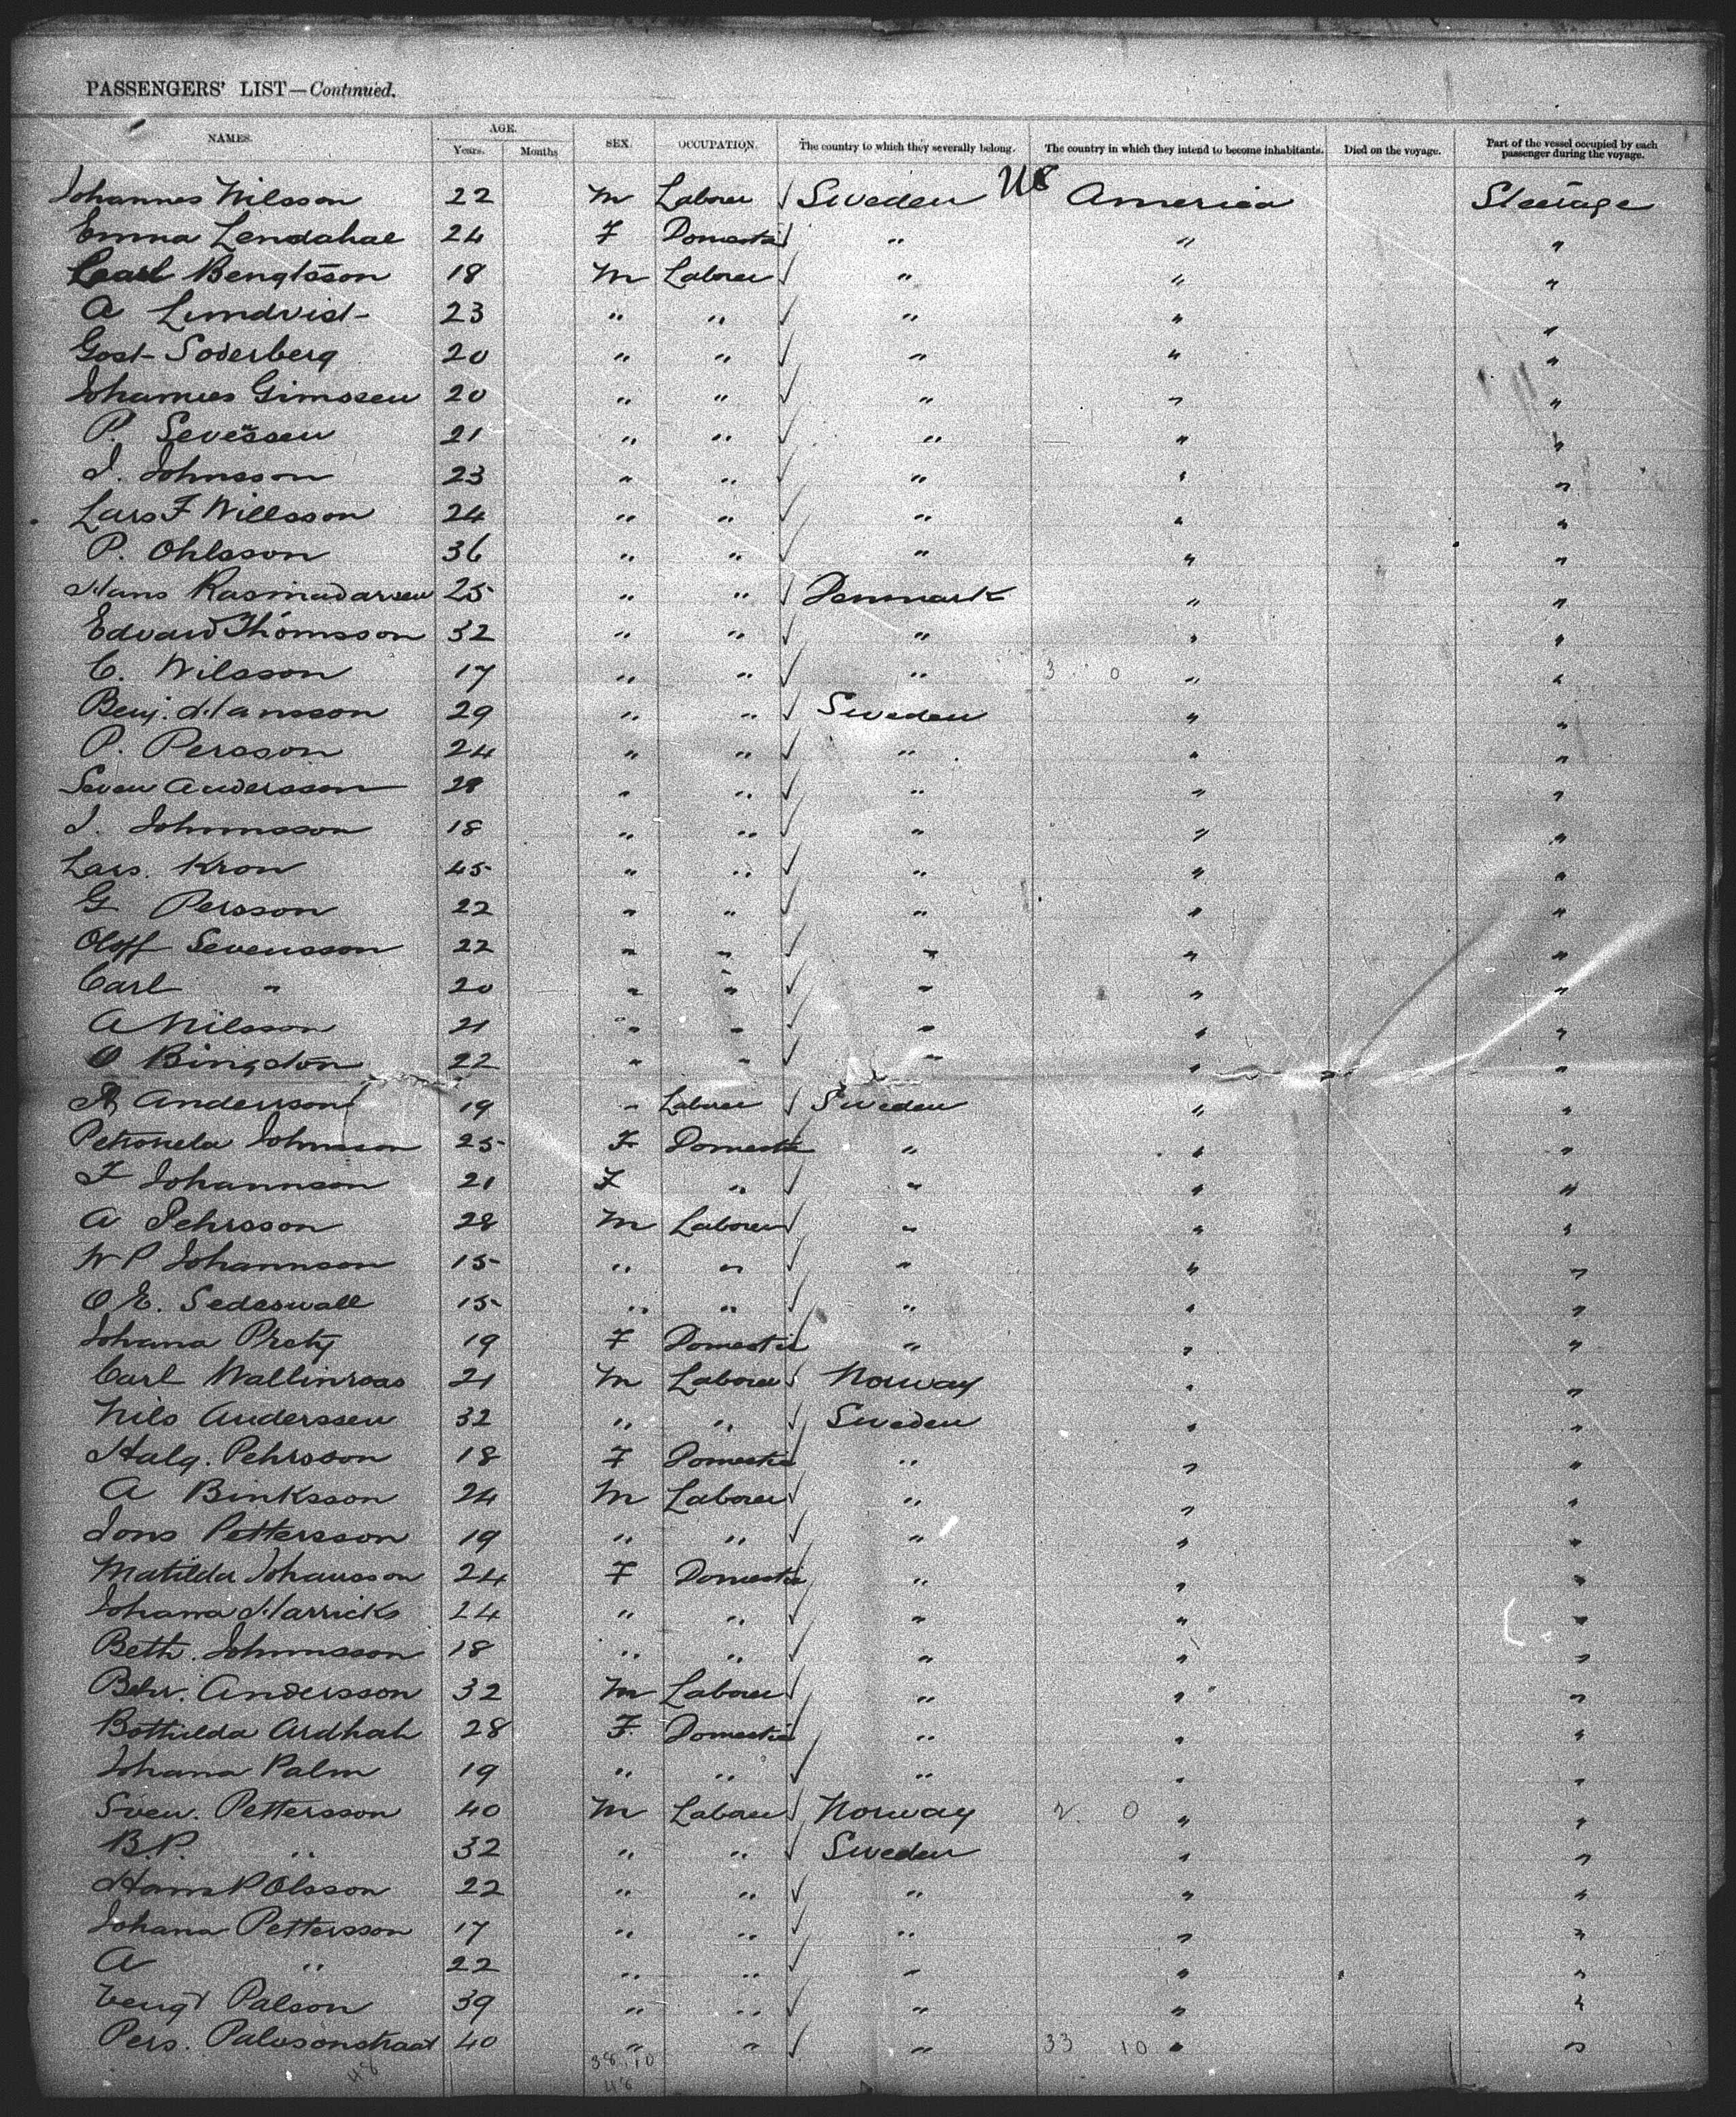 PASSENGERS' LIST—Continued.
NAMES. AGE. Years. Months SEX. OCCUPATION. The country to which they severally belong. The country in which they intend to become inhabitants. Died on the voyage. Part of the vessel occupied by each passenger during the voyage.
Johannes Nilsson 22 M Laborer √ Sweden US America Steerage
Emma Lendahal 24 F Domestic √ " " "
Carl Bengtsson 18 M Laborer √ " " "
A Lundvist 23 " " √ " " "
Gost Soderberg 20 " " √ " " "
Johannes Gimssen 20 " " √ " " "
P. Sevessen 21 " " √ " " "
J. Johnsson 23 " " √ " " "
Lars F Nillsson 24 " " √ " " "
P. Ohlsson 36 " " √ " " "
Hans 25 " " √ Denmark " "
Edvard Thomsson 32 " " √ " " "
C. Nilsson 17 " " √ " 3 0 " "
Benj. Hansson 29 " " √ Sweden " "
P. Persson 24 " " √ " " "
Seven Andersson 28 " " √ " " "
J. Johnsson 18 " " √ " " "
Lars. Kron 45 " " √ " " "
G Persson 22 " " √ " " "
Oloff Sevensson 22 " " √ " " "
Carl " 20 " " √ " " "
A Nilsson 21 " " √ " " "
O Bingdon 22 " " √ " " "
A Anderson 19 " Laborer √ Sweden " "
Petronela Johnsson 25 F Domestic √ " " "
F Johannson 21 F " √ " " "
A Pehrsson 28 M Laborer √ " " "
N P Johannson 15 " " √ " " "
O E. Sedeswall 15 " " √ " " "
Johana Pretz 19 F Domestic √ " " "
Carl Wallinroas 21 M Laborer √ Norway " "
Nils Anderssen 32 " " √ Sweden " "
Halg. Pehrsson 18 F Domestic √ " " "
A Binksson 24 M Laborer √ " " "
Jons Pettersson 19 " " √ " " "
Matilda Johansson 24 F Domestic √ " " "
Johana Harricks 24 " " √ " " "
Beth. Johnnsson 18 " " √ " " "
Behr. Andersson 32 M Laborer √ " " "
Bothilda Ardhah 28 F Domestic √ " " "
Johana Palm 19 " " √ " " "
Sven. Pettersson 40 M Laborer √ Norway 2 0 " "
B.P. " 32 " " √ Sweden " "
Hans P Olsson 22 " " √ " " "
Johana Pettersson 17 " " √ " " "
A " 22 " " √ " " "
Bengt Palson 39 " " √ " " "
Pers. Palssonstraat 40 " " √ " 33 10 " "
48 38.10
48